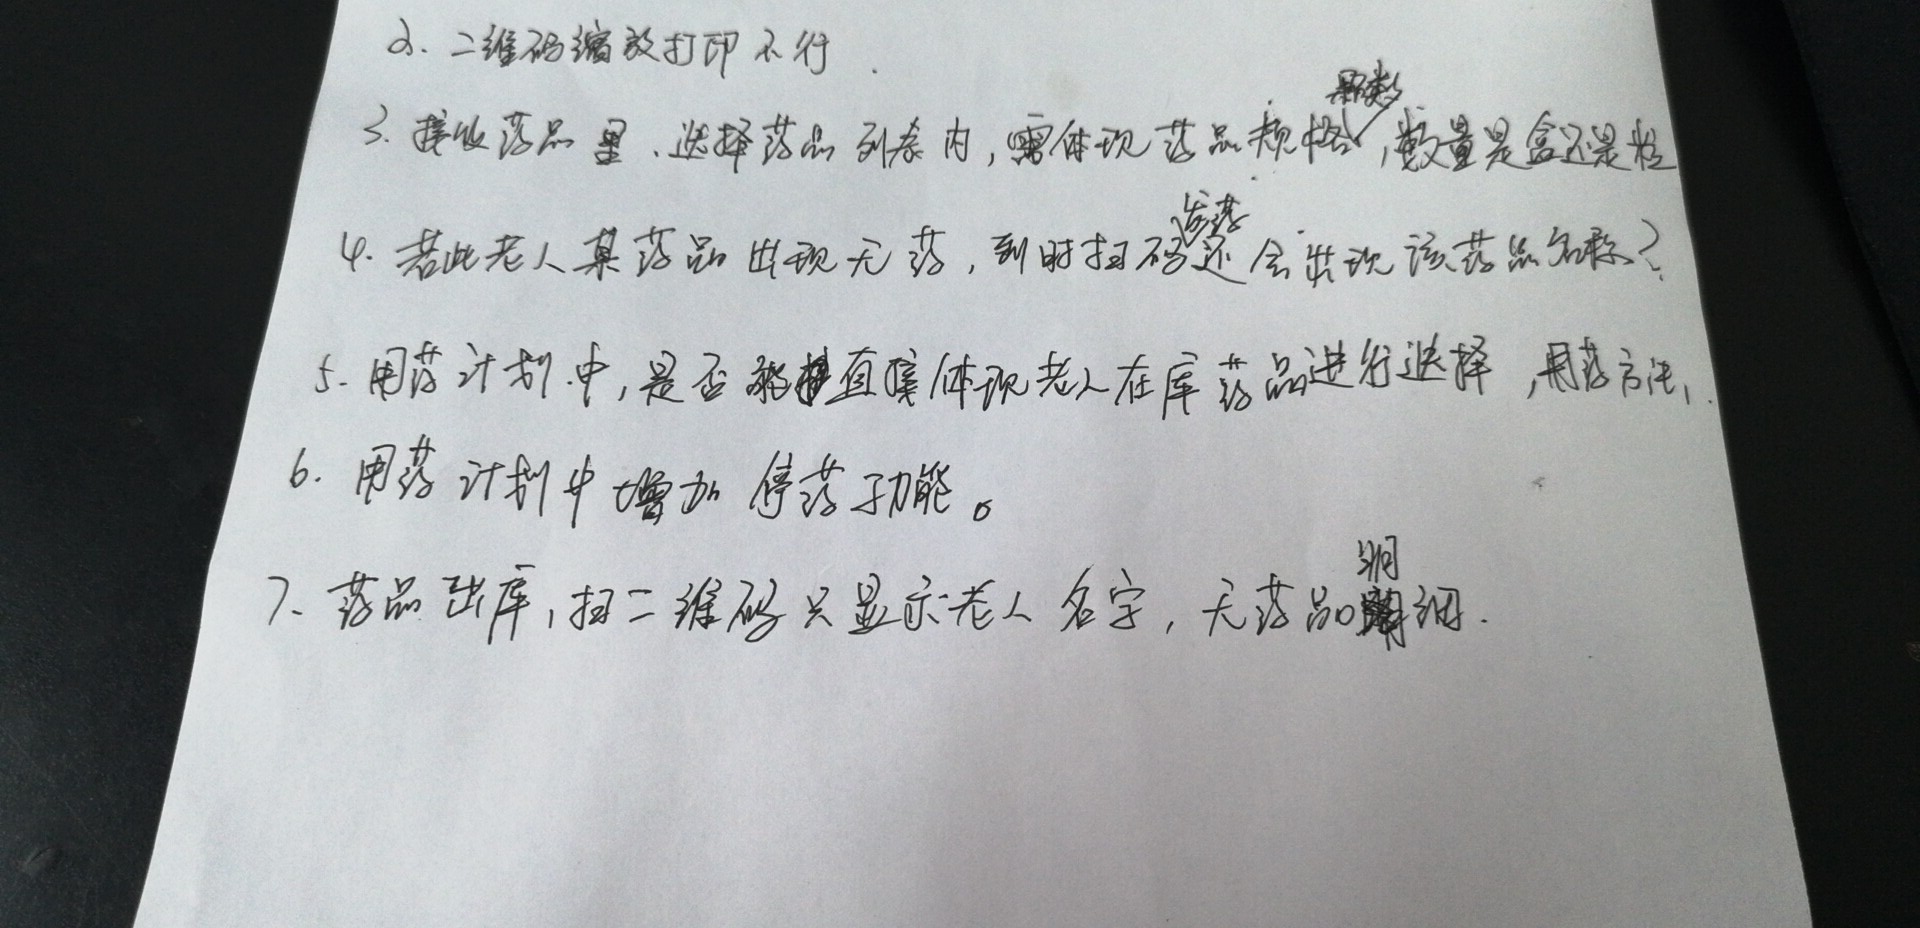 2. 二维码缩放打印不行.
3. 接收药品里、选择药品列表内,需体现药品规格颗数,数量是盒还是粒
4. 若此老人某药品出现无药,到时扫码发药还会出现该药品名称?
5. 用药计划中,是否能直接体现老人在库药品进行选择,用药方法,
6. 用药计划中增加停药功能。
7. 药品出库,扫二维码只显示老人名字,无药品明细.